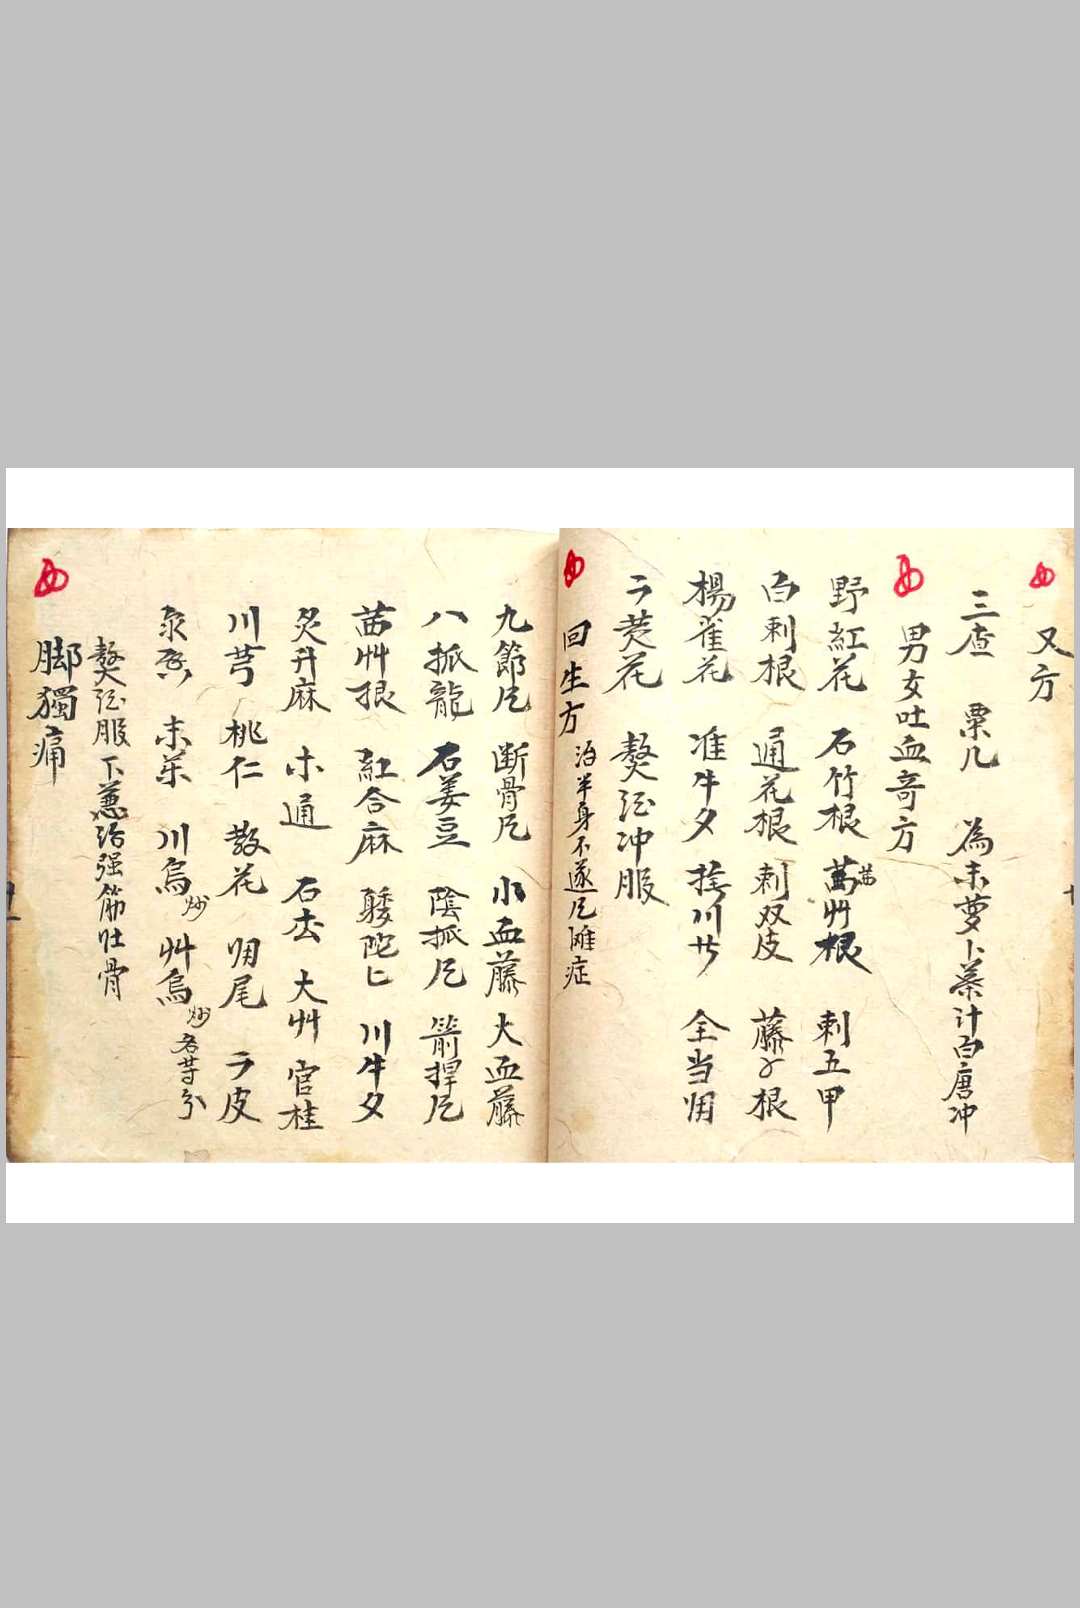 又方
三查 粟几 為末萝卜菜计白唐冲
男女吐血奇方
野紅花 石竹根 茜艸根 刺五甲
白刺根 通花根 刺双皮 藤子根
楊雀花 准牛夕 川芎 全当归
花 酒冲服
回生方 治半身不遂風滩症
九節風 断骨風 小血藤 大血藤
八抓龍 石姜豆 陰抓風 箭捍風
茜艸根 紅合麻 川牛夕
炙升麻 木通 石 大艸 官桂
川芎 桃仁 散花 归尾 皮
末药 川烏炒 艸烏炒 各等分
酒服 下 治强筋壮骨
脚獨痛